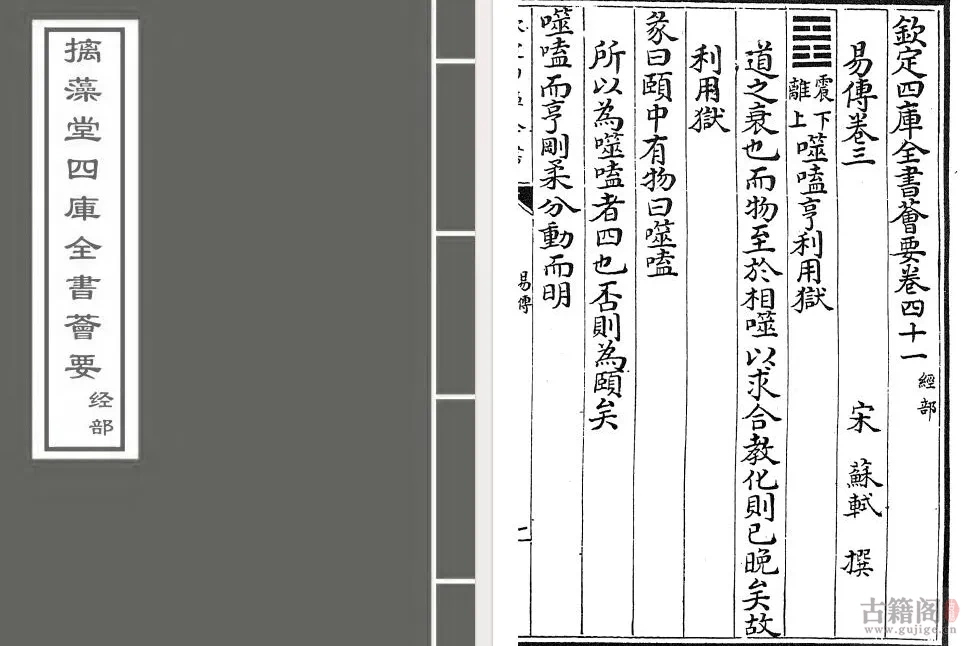 摛藻堂四庫全書薈要
经部
欽定四庫全書薈要卷四十一
經部
易傳卷三
宋 蘇軾 撰
震下
離上
噬嗑亨利用獄
道之衰也而物至於相噬以求合教化則已晚矣故
利用獄
彖曰頤中有物曰噬嗑
所以為噬嗑者四也否則為頤矣
噬嗑而亨剛柔分動而明
易傳
古籍阁
www.gujige.cn